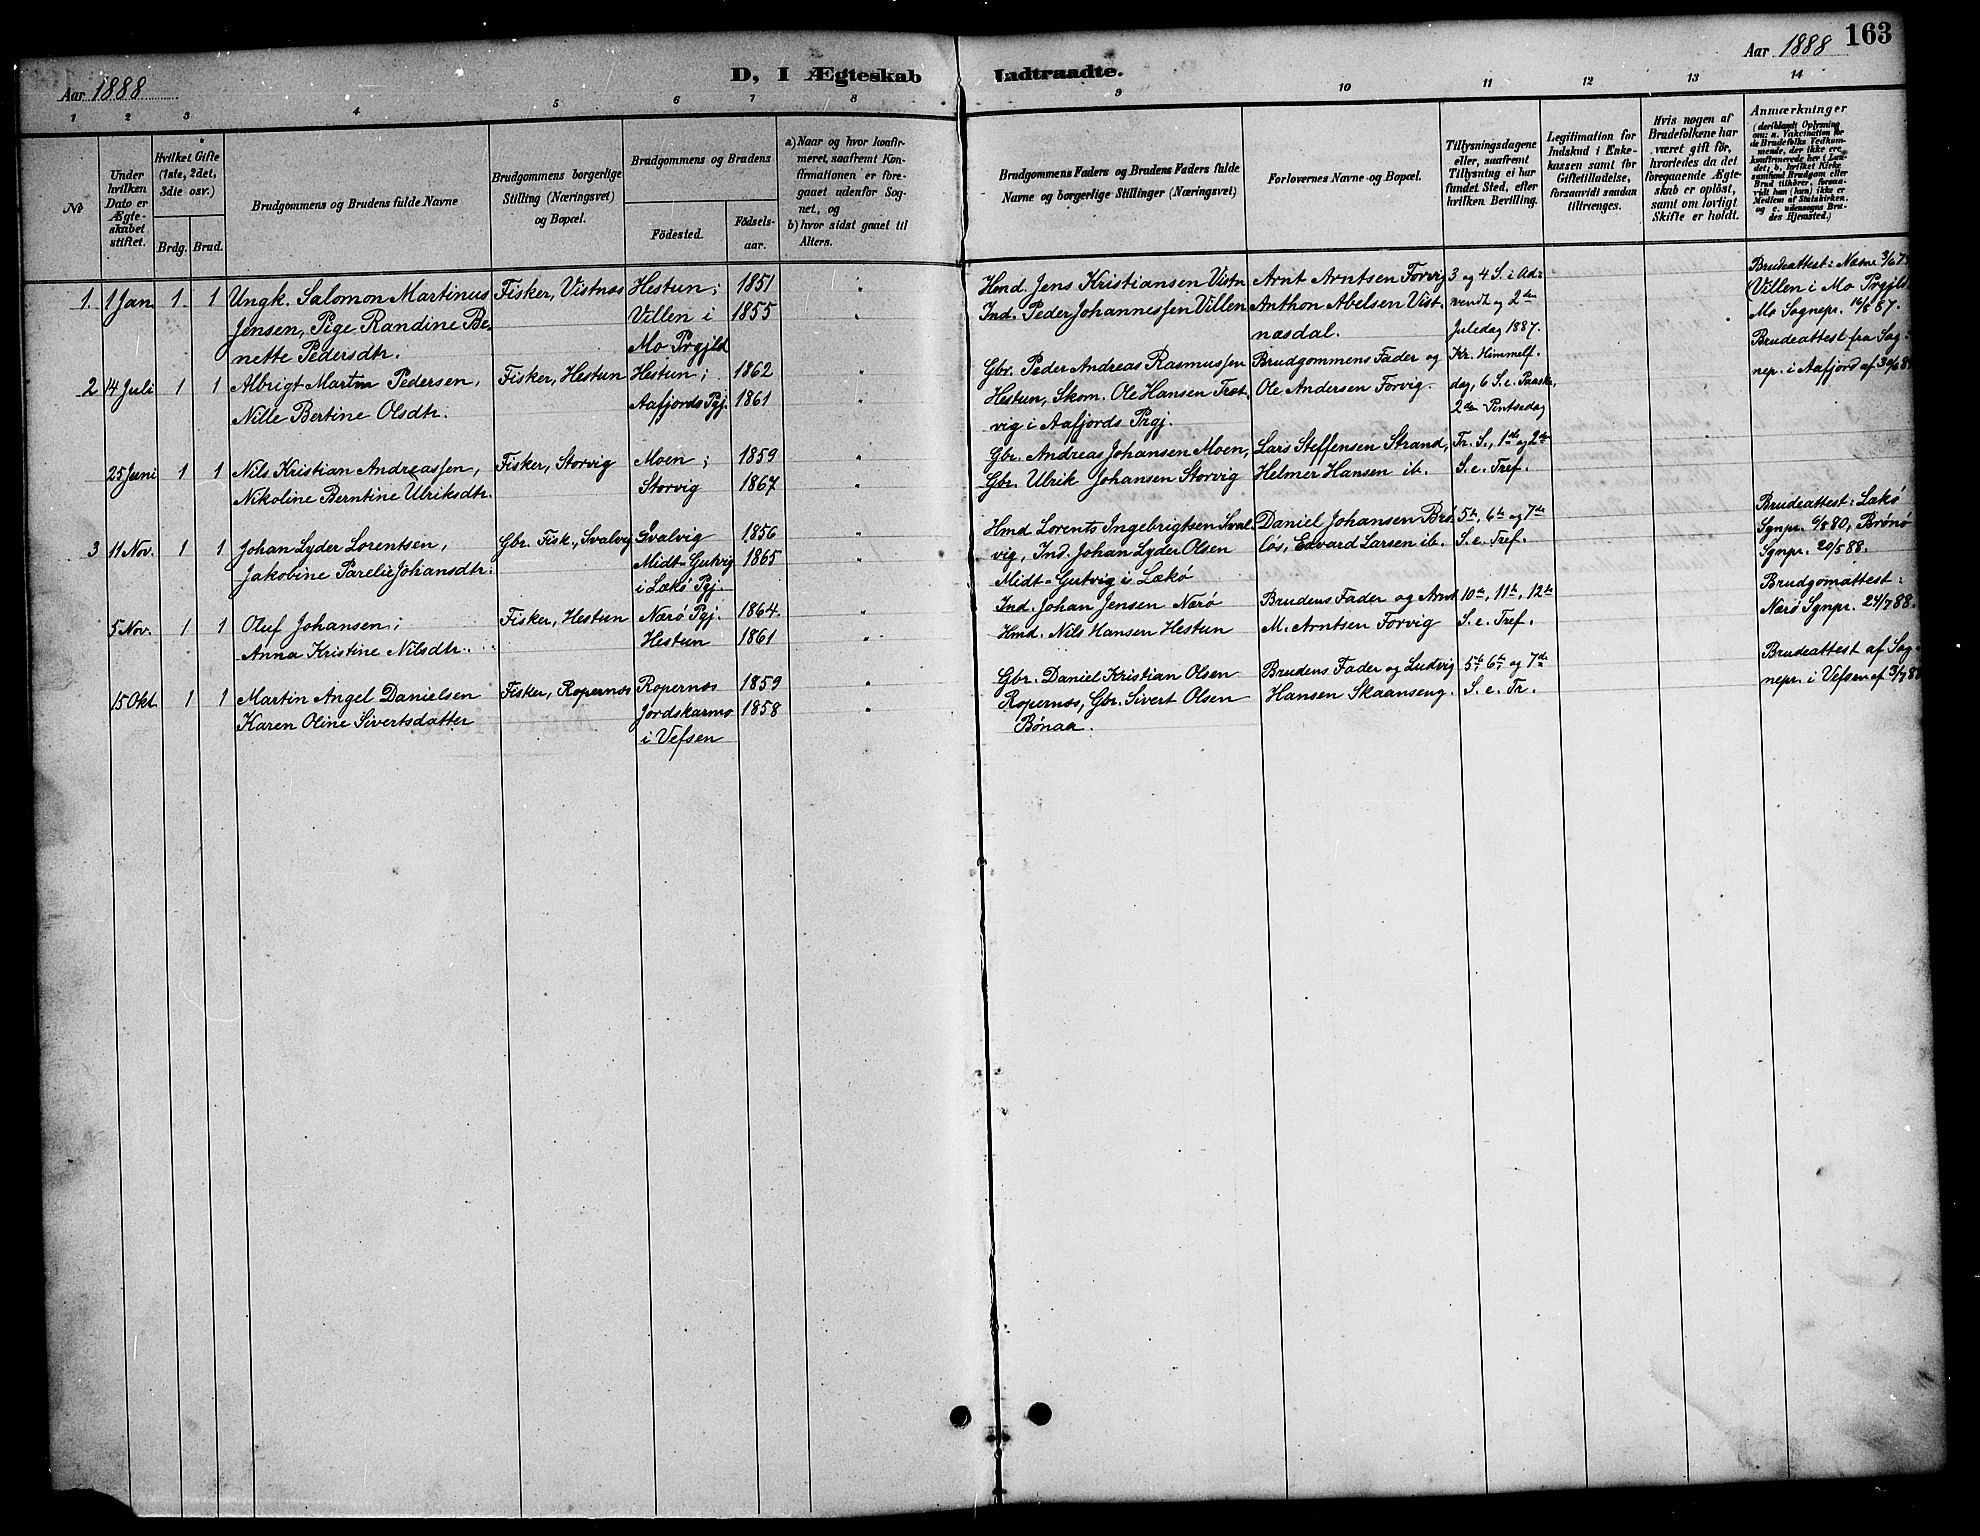 Aar 1888
D, I Ægteskab Indtraadte.
Aar 1888 163
1 2 3 4 5 6 7 8 9 10 11 12 13 14
No
Under hvilken Dato er Ægteskabet stiftet.
Hvilket Gifte (1ste, 2det, 3die osv.)
Brdg. Brud.
Brudgommens og Brudens fulde Navne
Brudgommens borgerlige Stilling (Næringsvei) og Bopæl.
Brudgommens og Brudens
Födested.
Födsels-aar.
a) Naar og hvor konfirmeret, saafremt Konfirmationen er foregaaet udenfor Sognet, og
b) hvor sidst gaaet til Alters.
Brudgommens Faders og Brudens Faders fulde Navne og borgerlige Stillinger (Næringsvei)
Forlovernes Navne og Bopæl.
Tillysningsdagene eller, saafremt Tillysning ei har fundet Sted, efter hvilken Bevilling.
Legitimation for Indskud i Enkekassen samt for Giftetilladelse, forsaavidt saadan tiltrænges.
Hvis nogen af Brudefolkene har været gift för, hvorledes da det foregaaende Ægteskab er oplöst, samt om lovligt Skifte er holdt.
Anmærkninger (deriblandt Oplysning om: a. Vakcination for de Brudefolks Vedkommende, der ikke ere konfirmerede her i Landet, b. hvilket Kirkesamfund Brudgom eller Brud tilhörer, forsaavidt han (hun) ikke er Medlem af Statskirken, og c. udensogns Brudes Hjemsted.)
1. 1 Jan 1. 1 Ungk. Salomon Martinus Fisker, Vistnæs Hestun; 1851 "
Jensen, Pige Randine Be- Villen i 1855 "
nette Pedersdtr. Mo Prgjld
2 14 Juli 1 1 Albrigt Martin Pedersen, Fisker, Hestun Hestun; 1862 "
Nille Bertine Olsdtr. Aafjords Pgj. 1861 "
25 Juni 1 1 Nils Kristian Andreassen, Fisker, Storvig Moen; 1859 "
Nikoline Berntine Ulriksdtr. Storvig 1867 "
3 11 Nov. 1 1 Johan Lyder Lorentsen, Gbr. Fisk., Svalvig Svalvig 1856
Jakobine Parelie Johansdtr. Midt-Gutvig 1865
i Lekø Pgj.
5 Nov. 1 1 Oluf Johansen; Fisker, Hestun Nærø Pgj. 1864. "
Anna Kristine Nilsdtr. Hestun 1861 "
15 Okt. 1 1 Martin Angel Danielsen Fisker, Ropernæs Ropernæs 1859 "
Karen Oline Sivertsdatter Jordskarmo 1858 "
i Vefsen
Hmd. Jens Kristiansen Vistn Arnt Arntsen Forvig 3 og 4 S. i Ad-
Ind. Peder Johannessen Villen Anthon Abelsen Vist- vendt og 2den
næsdal. Juledag 1887.
Gbr. Peder Andreas Rasmussen Brudgommens Fader og Kr. Himmelf.
Hestun, Skom. Ole Hansen Træt- Ole Andersen Forvig. dag, 6 S. e. Paaske,
vig i Aafjords Prgj. 2den Pintsedag
Gbr. Andreas Johansen Moen, Lars Steffensen Strand, Tr. S., 1ste og 2den
Gbr. Ulrik Johansen Storvig Helmer Hansen ib. S. e. Tref.
Hmd Lorents Ingebrigtsen Sval- Daniel Johansen Brø- 5te, 6te og 7de
vig, Ind. Johan Lyder Olsen løs, Edvard Larsen ib. S. e. Tref.
Midt-Gutvig i Lækø
Ind. Johan Jensen Nærø Brudens Fader og Arnt 10te, 11te, 12te
Hmd. Nils Hansen Hestun M. Arntsen Forvig S. e. Tref.
Gbr. Daniel Kristian Olsen Brudens Fader og Ludvig 5te 6te og 7de
Ropernæs, Gbr. Sivert Olsen Hansen Skaanseng. S. e. Tr.
Bønaa.
Brudeattest: Næsne
(Villen i Mo Prgjld.
Mo Sognepr. 16/8 87.
Brudeattest fra Sog-
nepr. i Aafjord af 30/6 88
Brudeattest: Lækø
Sgnpr. 6/8 80, Brønø
Sgnpr. 20/5 88.
Brudgomattest:
Nærø Sgnpr. 24/7 88.
Brudeattest af Sog-
nepr. i Vefsen af 3/7 88